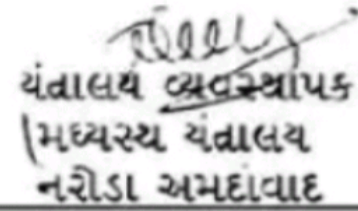 યંત્રાલય વ્યવસ્થાપક
મધ્યસ્થ યંત્રાલય
નરોડા અમદાવાદ